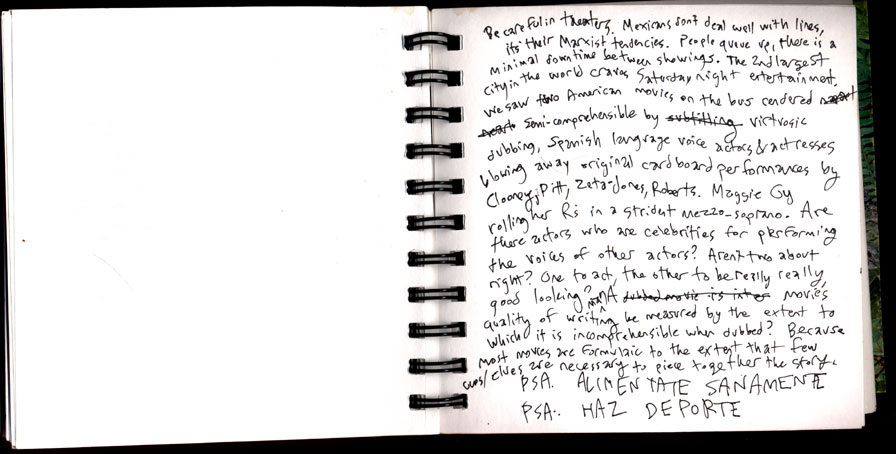 Be careful in theaters. Mexicans don't deal well with lines,
its their Marxist tendencies. People queue up, there is a
minimal downtime between showings. The 2nd largest
city in the world craves Saturday night entertainment.
We saw two American movies on the bus rendered
semi-comprehensible by subtitling virtuosic
dubbing, Spanish language voice actors & actresses
blowing away original cardboard performances by
Clooney, Pitt, Zeta-Jones, Roberts. Maggie Gy
rolling her Rs in a strident mezzo-soprano. Are
there actors who are celebrities for performing
the voices of other actors? Aren't two about
right? One to act, the other to be really really,
good looking? A dubbed movie is inter movie's
quality of writing be measured by the extent to
which it is incomprehensible when dubbed? Because
most movies are formulaic to the extent that few
cues/clues are necessary to piece together the story.
PSA. ALIMENTATE SANAMENTE
PSA: HAZ DEPORTE